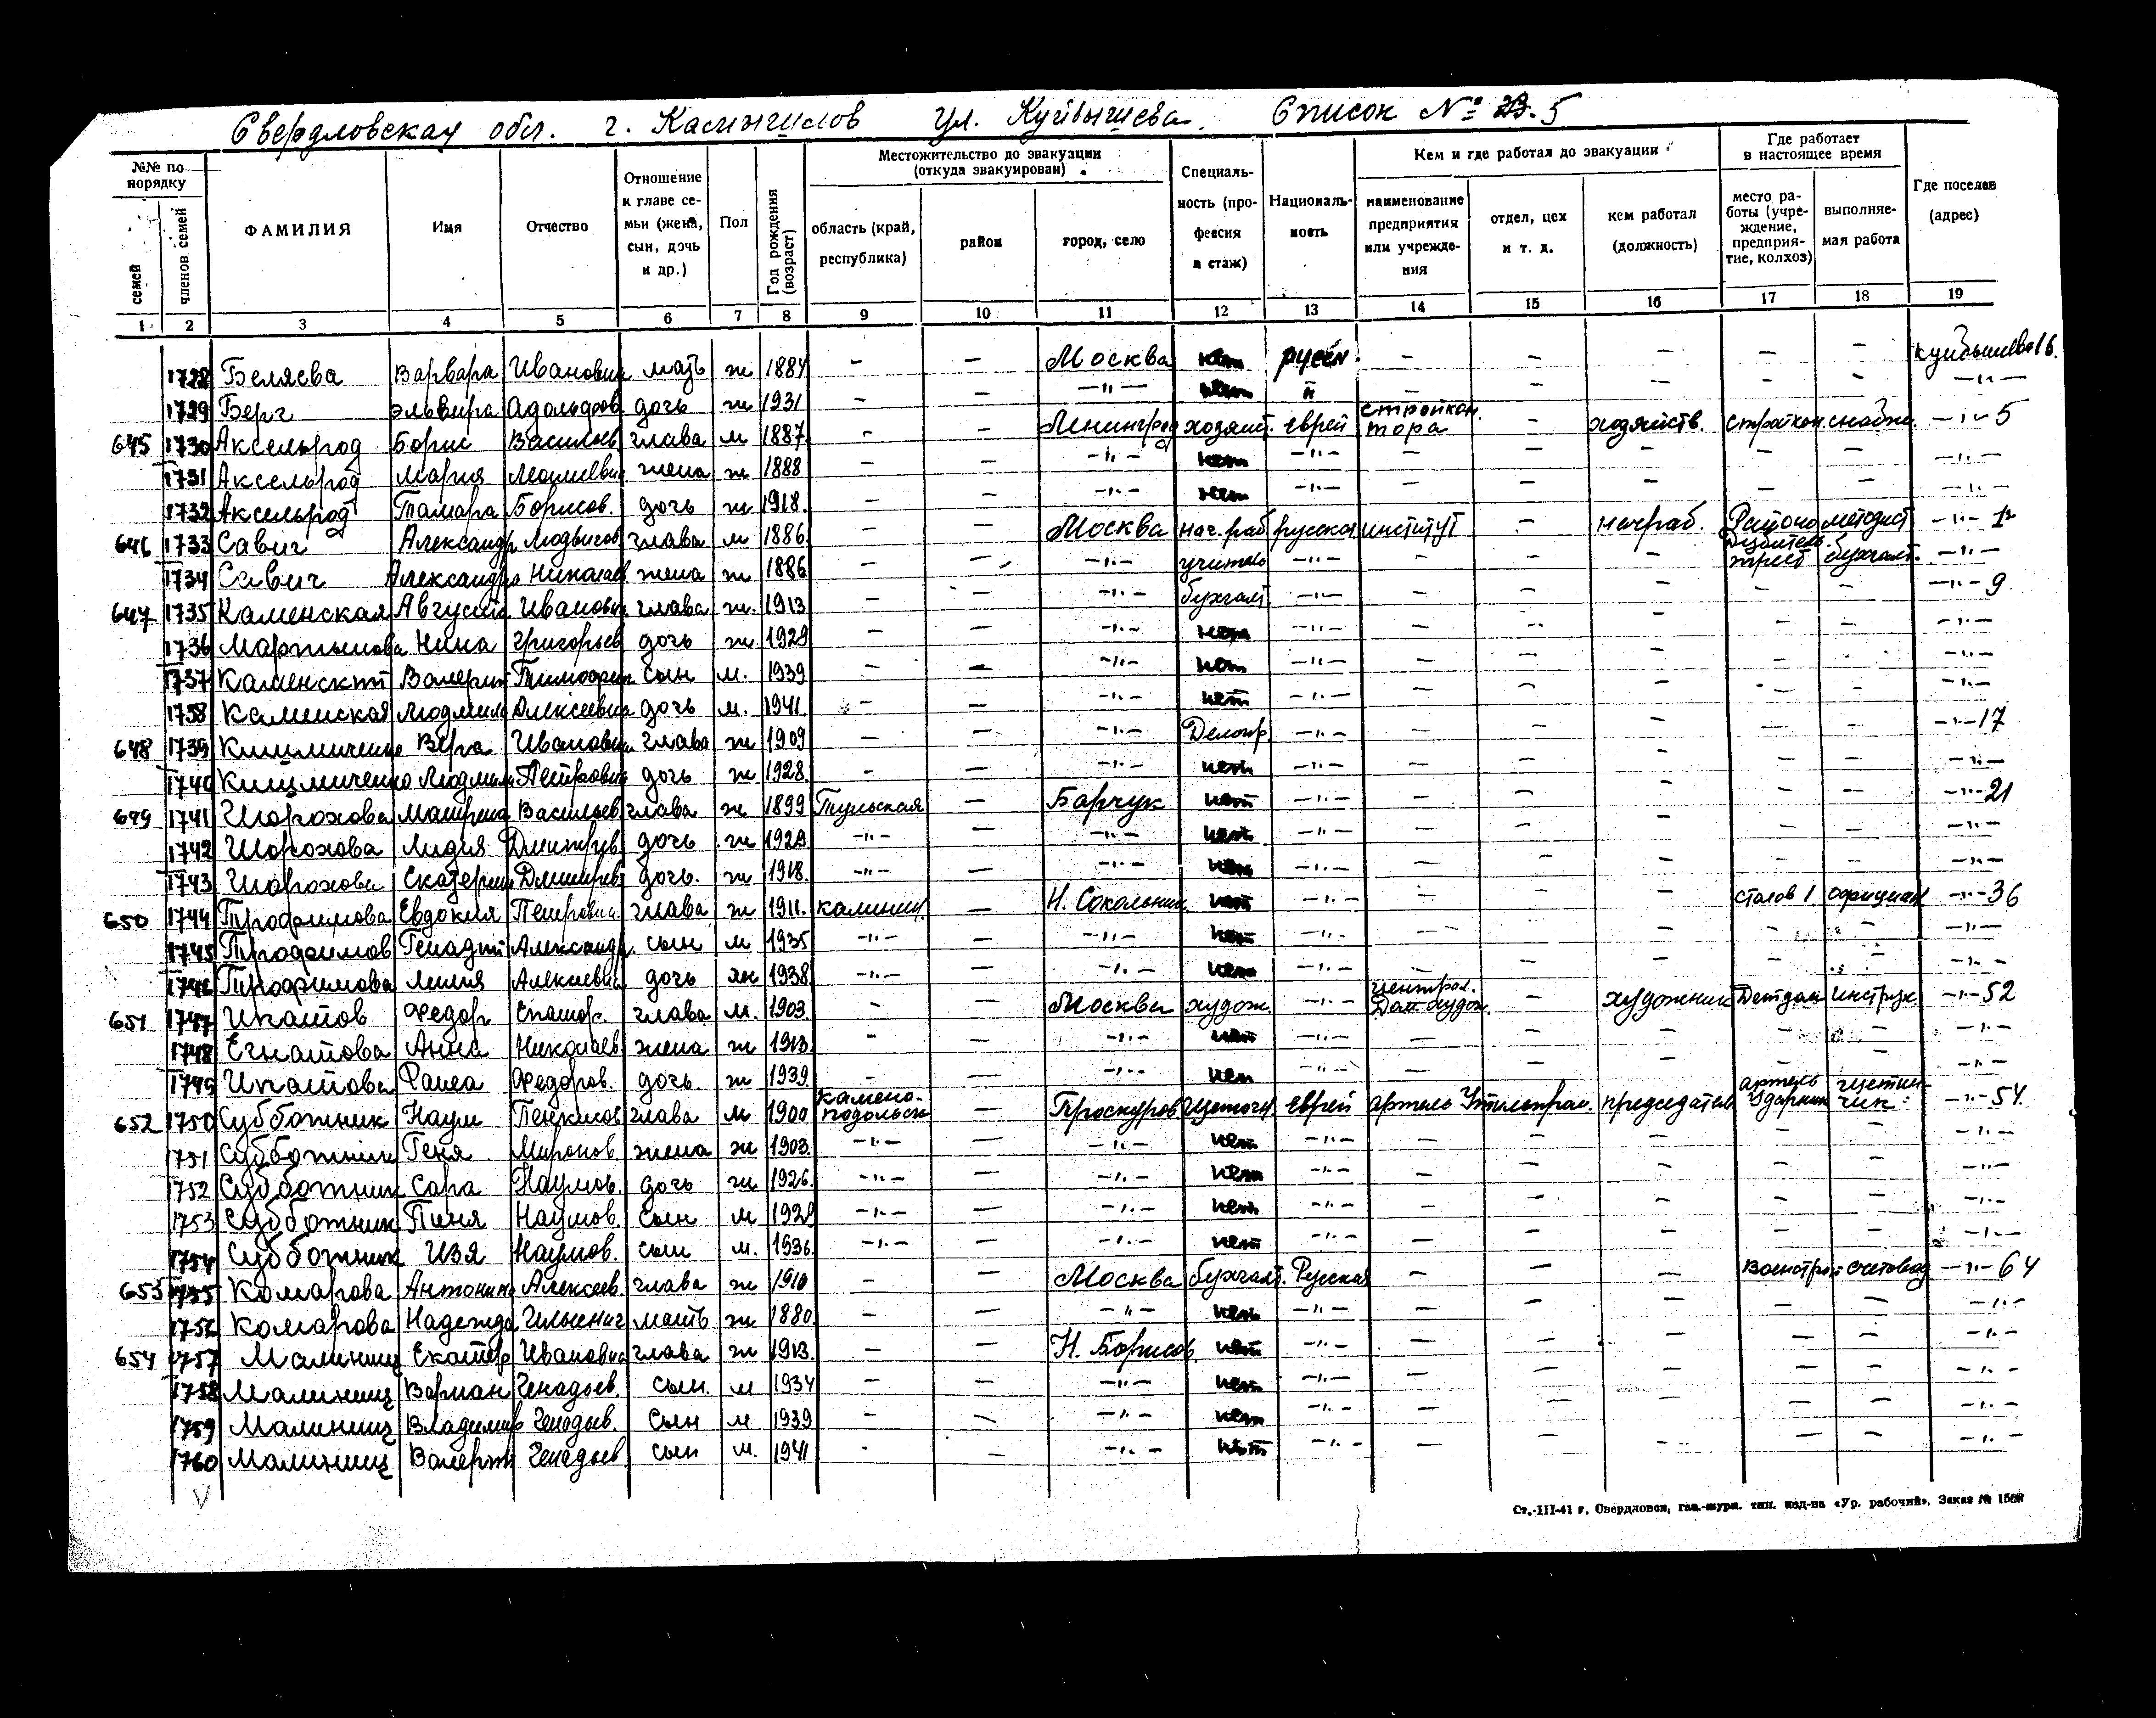 Свердловская обл. г. Камышлов ул. Куйбышева. Список № 5
№№ по порядку
семей
членов семей
ФАМИЛИЯ
Имя
Отчество
Отношение к главе семьи (жена, сын, дочь и др.)
Пол
Год рождения (возраст)
Местожительство до эвакуации (откуда эвакуирован)
область (край, республика)
район
город, село
Специальность (профессия и стаж)
Национальность
Кем и где работал до эвакуации
наименование предприятия или учреждения
отдел, цех и т. д.
кем работал (должность)
Где работает в настоящее время
место работы (учреждение, предприятие, колхоз)
выполняемая работа
Где поселен (адрес)
1 2 3 4 5 6 7 8 9 10 11 12 13 14 15 16 17 18 19
1728 Беляева Варвара Ивановна мать ж 1884 - - Москва нет русск. - - - - - Куйбышева 16.
1729 Берг Эльвира Адольфов дочь ж 1931 - - -"- нет " - - - - - -"-
645 1730 Аксельрод Борис Васильев глава м 1887 - - Ленинград хозяйст. еврей стройконтора - хозяйств. стройкон. снабж. -"- 5
1731 Аксельрод Мария женa ж 1888 - - -"- нет -"- - - - - - -"-
1732 Аксельрод Тамара Борисов. дочь ж 1918. - - -"- нет -"- - - - - - -"-
646 1733 Савич Александр Людвигов глава м 1886 - - Москва нач. раб русская институт - методист -"-
1734 Савич Александра Николаев жена ж 1886 - - -"- учитель -"- - - - трест бухгалт. -"-
647 1735 Каменская Августа Ивановн глава ж. 1913 - - -"- бухгалт. -"- - - - - - -"- 9
1736 Мартынова Нина Григорьев дочь ж. 1929 - - -"- нет -"- - - - - - -"-
1737 Каменский Валерий Тимофеев сын м. 1939 - - -"- нет -"- - - - - - -"-
1738 Каменская Людмила Алексеевна дочь м. 1941. - - -"- нет -"- - - - - - -"-
648 1739 Вера Ивановн глава ж 1909 - - -"- Делопр. -"- - - - - - -"- 17
1740 Людмила Петровна дочь ж 1928. - - -"- нет -"- - - - - - -"-
649 1741 Шорохова Васильев глава ж 1899 Тульская - Барчук нет -"- - - - - - -"- 21
1742 Шорохова Лидия Дмитриев дочь ж 1929 -"- - -"- нет -"- - - - - - -"-
1743 Шорохова Екатерин Дмитриев дочь. ж 1918. -"- - -"- нет -"- - - - - - -"-
650 1744 Трофимова Евдокия Петровна глава ж 1911. калинин. - Н. Сокольник. нет -"- - - - столов 1 официан -"- 36
1745 Трофимов Генадий Александр. сын м 1935 -"- - -"- нет -"- - - - - - -"-
1746 Трофимова Лилия Алексевна дочь ж 1938 -"- - -"- нет -"- - - - - - -"-
651 1747 Игнатов Федор глава м. 1903 - - Москва худож. -"- - художник Детдом инструк. -"- 52
1748 Егнатова Анна Николаев жена ж 1913 - - -"- нет -"- - - - - - -"-
1749 Игнатова Федоров. дочь ж 1939 - - -"- нет -"- - - - - - -"-
652 1750 Субботник Наум глава м 1900 камено-подольск - Проскуров Щеточн. Еврей артель председатель артель Ударник щетинчик -"- 54.
1751 Субботник Геня Миронов жена ж 1903. -"- - -"- нет -"- - - - - - -"-
1752 Субботник Сара Наумов. дочь ж 1926. -"- - -"- нет -"- - - - - - -"-
1753 Субботник Пиня Наумов. сын м 1929 -"- - -"- нет -"- - - - - - -"-
1754 Субботник Изя Наумов. сын м. 1936. -"- - -"- нет -"- - - - - - -"-
653 1755 Комарова Антонина Алексеев. глава ж 1910 - - Москва бухгалт. Русская - - - счетовод -"- 64
1756 Комарова Надежда мать ж 1880 - - -"- нет -"- - - - - - -"-
654 1757 Малиниц Екатер Ивановна глава ж 1913. - - Н. Борисов. нет -"- - - - - - -"-
1758 Малиниц Генадьев. сын. м 1934 - - -"- нет -"- - - - - - -"-
1759 Малиниц Владимир Генадьев. сын м 1939 - - -"- нет -"- - - - - - -"-
1760 Малиниц Валерий Генадьев сын м. 1941 - - -"- нет -"- - - - - - -"-
Ст.-III-41 г. Свердловск, газ.-журн. тип. изд-ва «Ур. рабочий». Заказ №